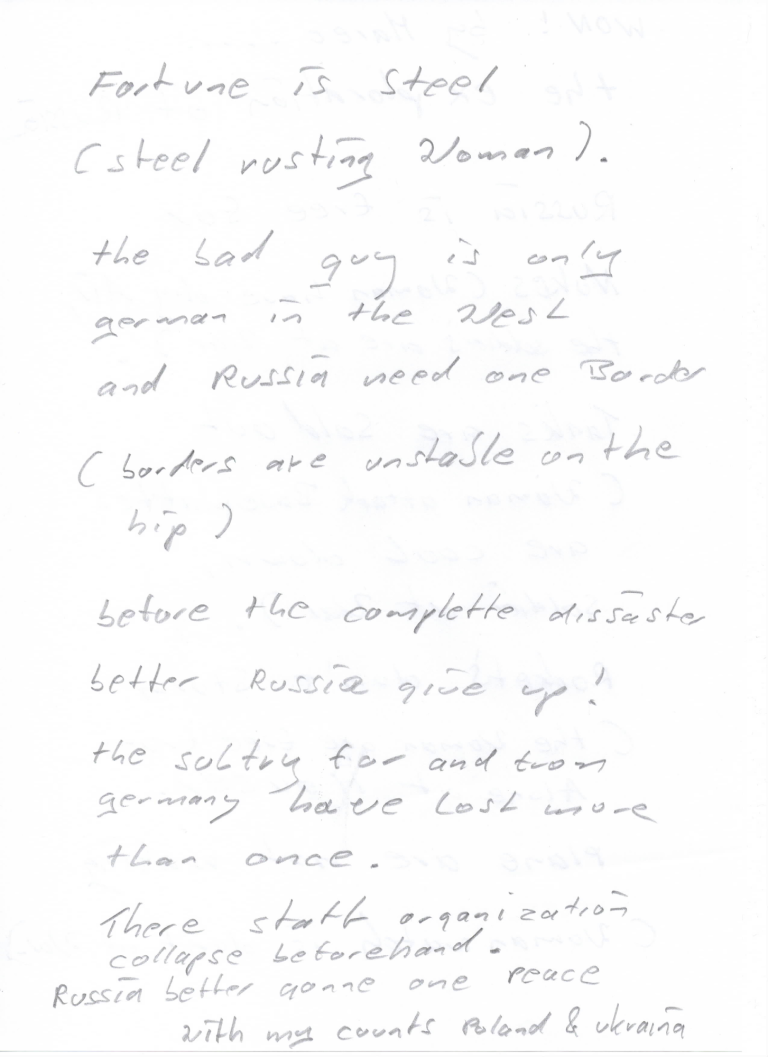 Fortune is steel
(steel rusting Woman).
the bad guy is only
german in the West
and Russia need one Border
(borders are unstable on the
hip)
before the complette dissaster
better Russia give up!
the sultry for and from
germany have Lost more
than once.
There staff organization
collapse beforehand.
Russia better gonne one peace
with my counts Poland & ukraina